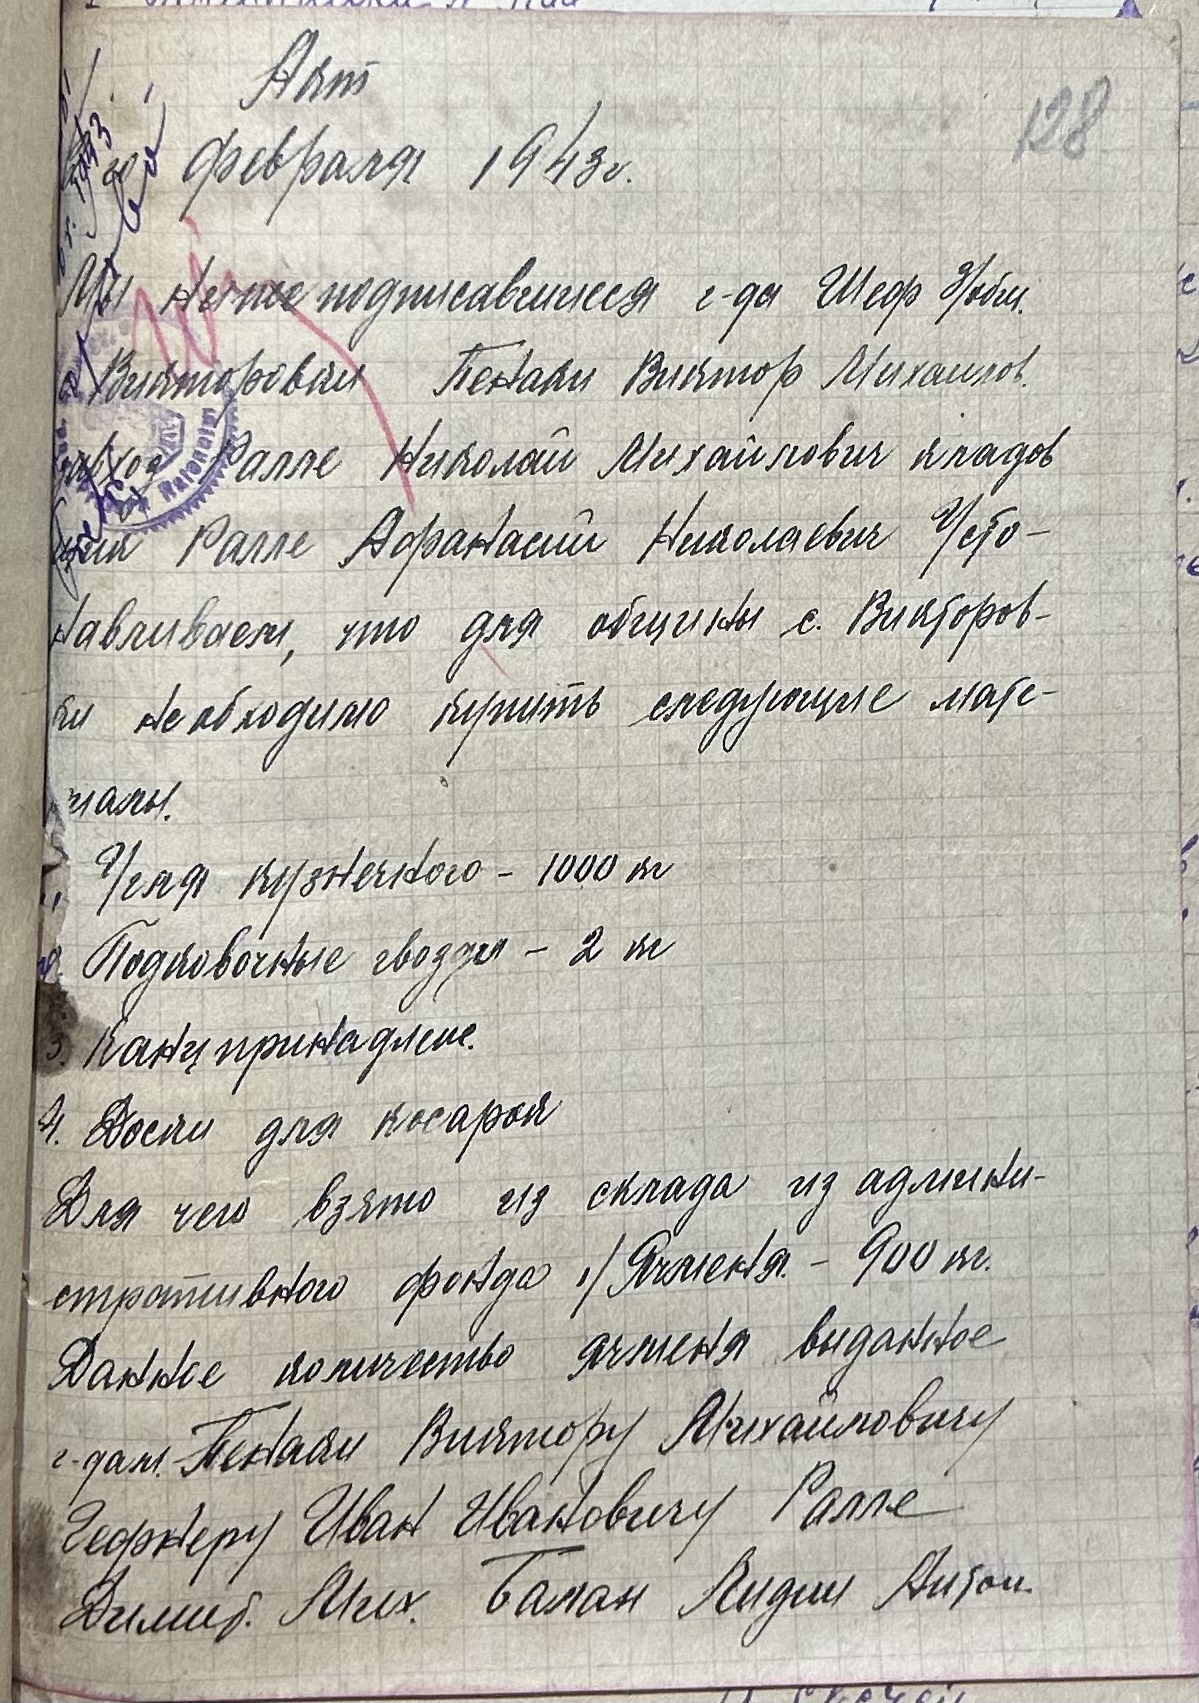 Акт
128
февраля 1943г.
Мы ниже подписавшиеся г-да Шеф
Викторовки Пенаки Виктор Михайлов.
Ралле Николай Михайлович кладов
щик Ралле Афанасий Николаевич Усто-
навливаем, что для общины с. Викторов-
ки необходимо купить следующие мате-
риалы.
1. Угля кузнечного – 1000 кг
2. Подковочные гвозди – 2 кг
3. Канц принадлеж.
4. Доски для косарок
Для чего взято из склада из админи-
стративного фонда 1/ Ячменя. – 900 кг.
Данное количество ячменя выданное
г-дам. Пенаки Виктору Михайловичу
Гефнеру Иван Ивановичу Ралле
Димит. Мих. Балан Лидии Антон.